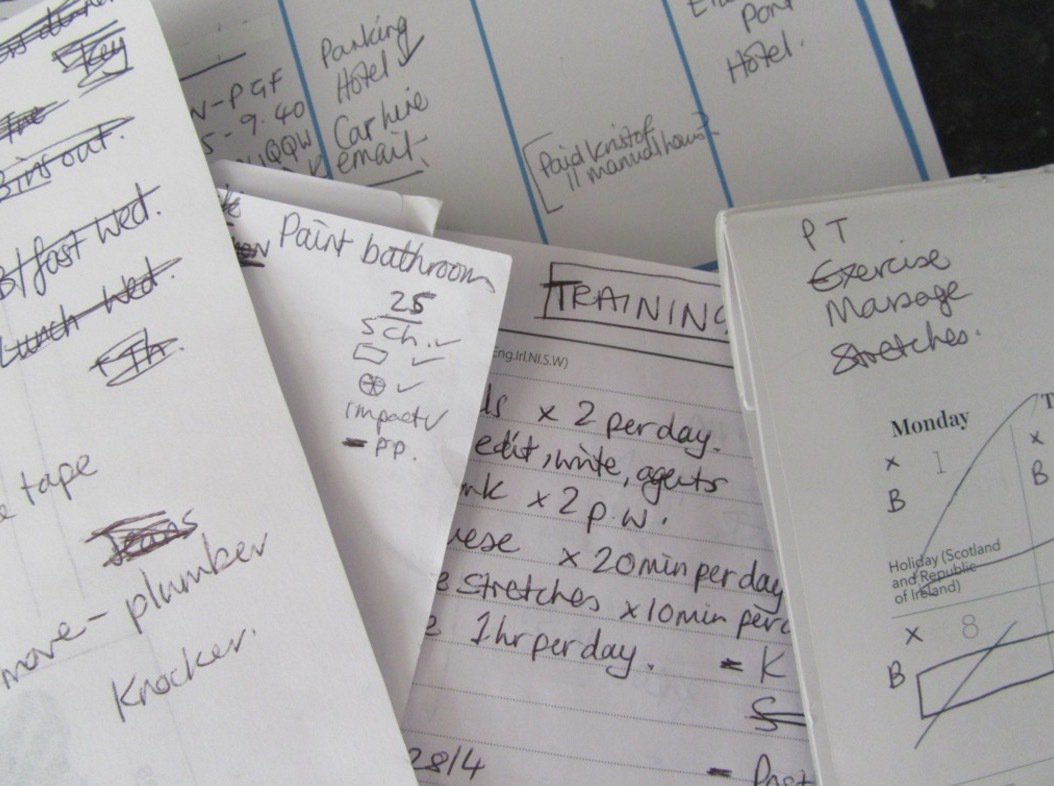 Key
Bins out.
B/fast Wed.
Lunch Wed.
+ Th.
tape
Jeans
more - plumber
Knocker.
N-PGF
5-9.40
QQW
Parking
Hotel ✓
Car hire
email.
[Paid Kristof
11 manual hours]
Port
Hotel.
Paint bathroom
25
5 Ch. ✓
✓
✓
impact ✓
= PP.
TRAINING
Eng.Irl.NI.S.W)
x 2 per day.
edit, write, agents
x 2 p.w.
x 20min per day
Stretches x 10min per
1hr per day.
= K
S
28/4
PT
Exercise
Massage
Stretches.
Monday
T
x 1
x
B
B
Holiday (Scotland
and Republic
of Ireland)
x 8
B